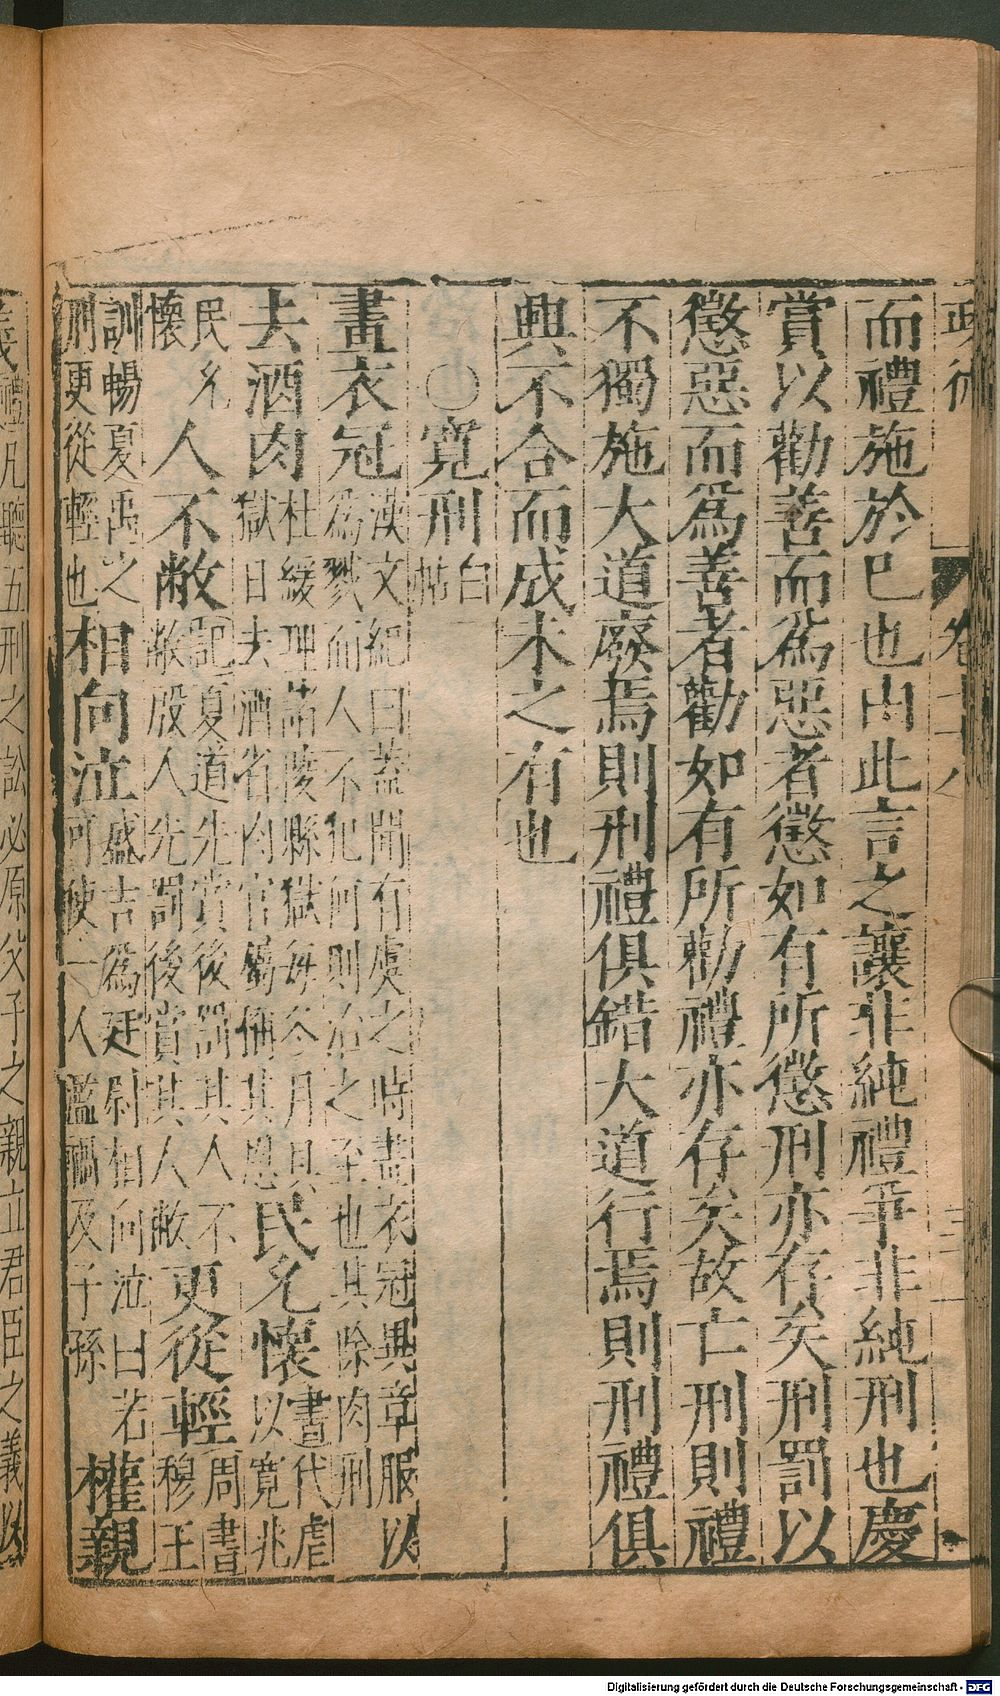 而禮施於已也由此言之讓非純禮爭非純刑也慶
賞以勸善而爲惡者懲如有所懲刑亦存矣刑罰以
懲惡而爲善者勸如有所勸禮亦存矣故亡刑則禮
不獨施大道廢焉則刑禮俱錯大道行焉則刑禮俱
興不合而成未之有也
○寬刑 白帖
畫衣冠 漢文紀曰蓋聞有虞之時畫衣冠異章服以
爲戮而人不犯何則治之至也其除肉刑
去酒肉 杜緩理諸陵縣獄每冬月具
獄日去酒省肉官屬稱其恩 民允懷 書代虐
以寬兆
民允
懷 人不敝 記夏道先賞後罰其人不
敝殷人先罰後賞其人敝 更從輕 周書
穆王
訓暢夏禹之
刑更從輕也 相向泣 盛吉爲廷尉相向泣曰若
何使一人濫禍及子孫 權親
義 禮凡聽五刑之訟必原父子之親立君臣之義以
卷十八
Digitalisierung gefördert durch die Deutsche Forschungsgemeinschaft - DFG